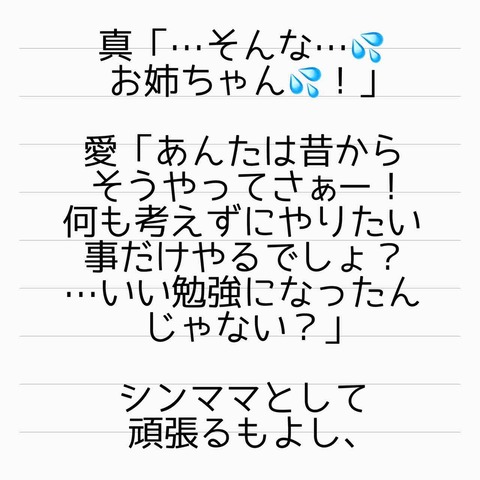 真「…そんな…💦
お姉ちゃん💦！」
愛「あんたは昔から
そうやってさぁー！
何も考えずにやりたい
事だけやるでしょ？
…いい勉強になったん
じゃない？」
シンママとして
頑張るもよし、